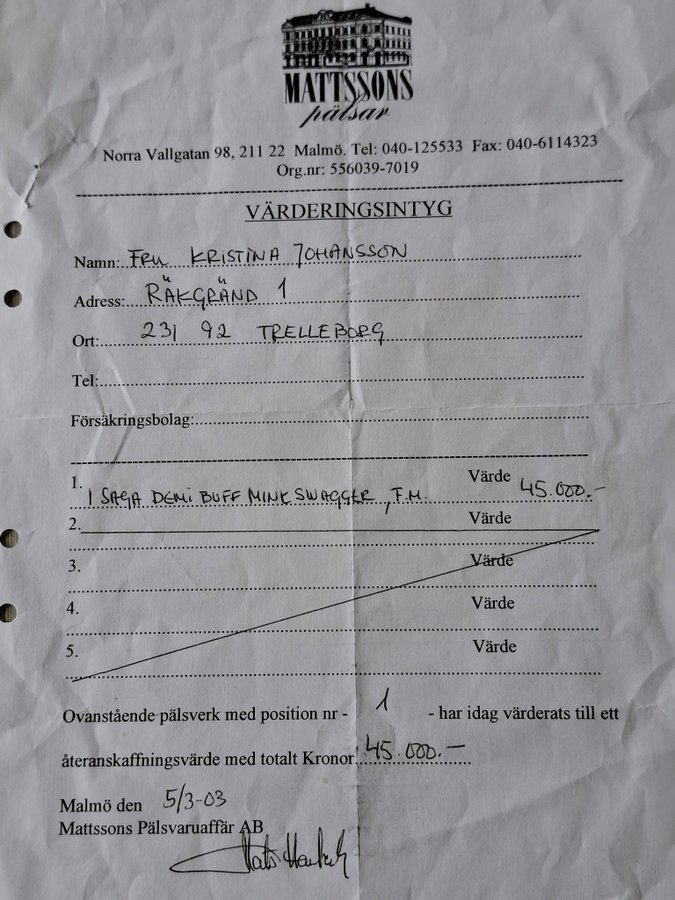 MATTSSONS
pälsar
Norra Vallgatan 98, 211 22 Malmö. Tel: 040-125533 Fax: 040-6114323
Org.nr: 556039-7019
VÄRDERINGSINTYG
Namn: FRU KRISTINA JOHANSSON
Adress: RÄKGRÄND 1
Ort: 231 92 TRELLEBORG
Tel:
Försäkringsbolag:
1. 1 SAGA DEMI BUFF MINK SWAGGER, F.M. Värde 45.000.-
2. Värde
3. Värde
4. Värde
5. Värde
Ovanstående pälsverk med position nr - 1 - har idag värderats till ett
återanskaffningsvärde med totalt Kronor 45.000.-
Malmö den 5/3-03
Mattssons Pälsvaruaffär AB